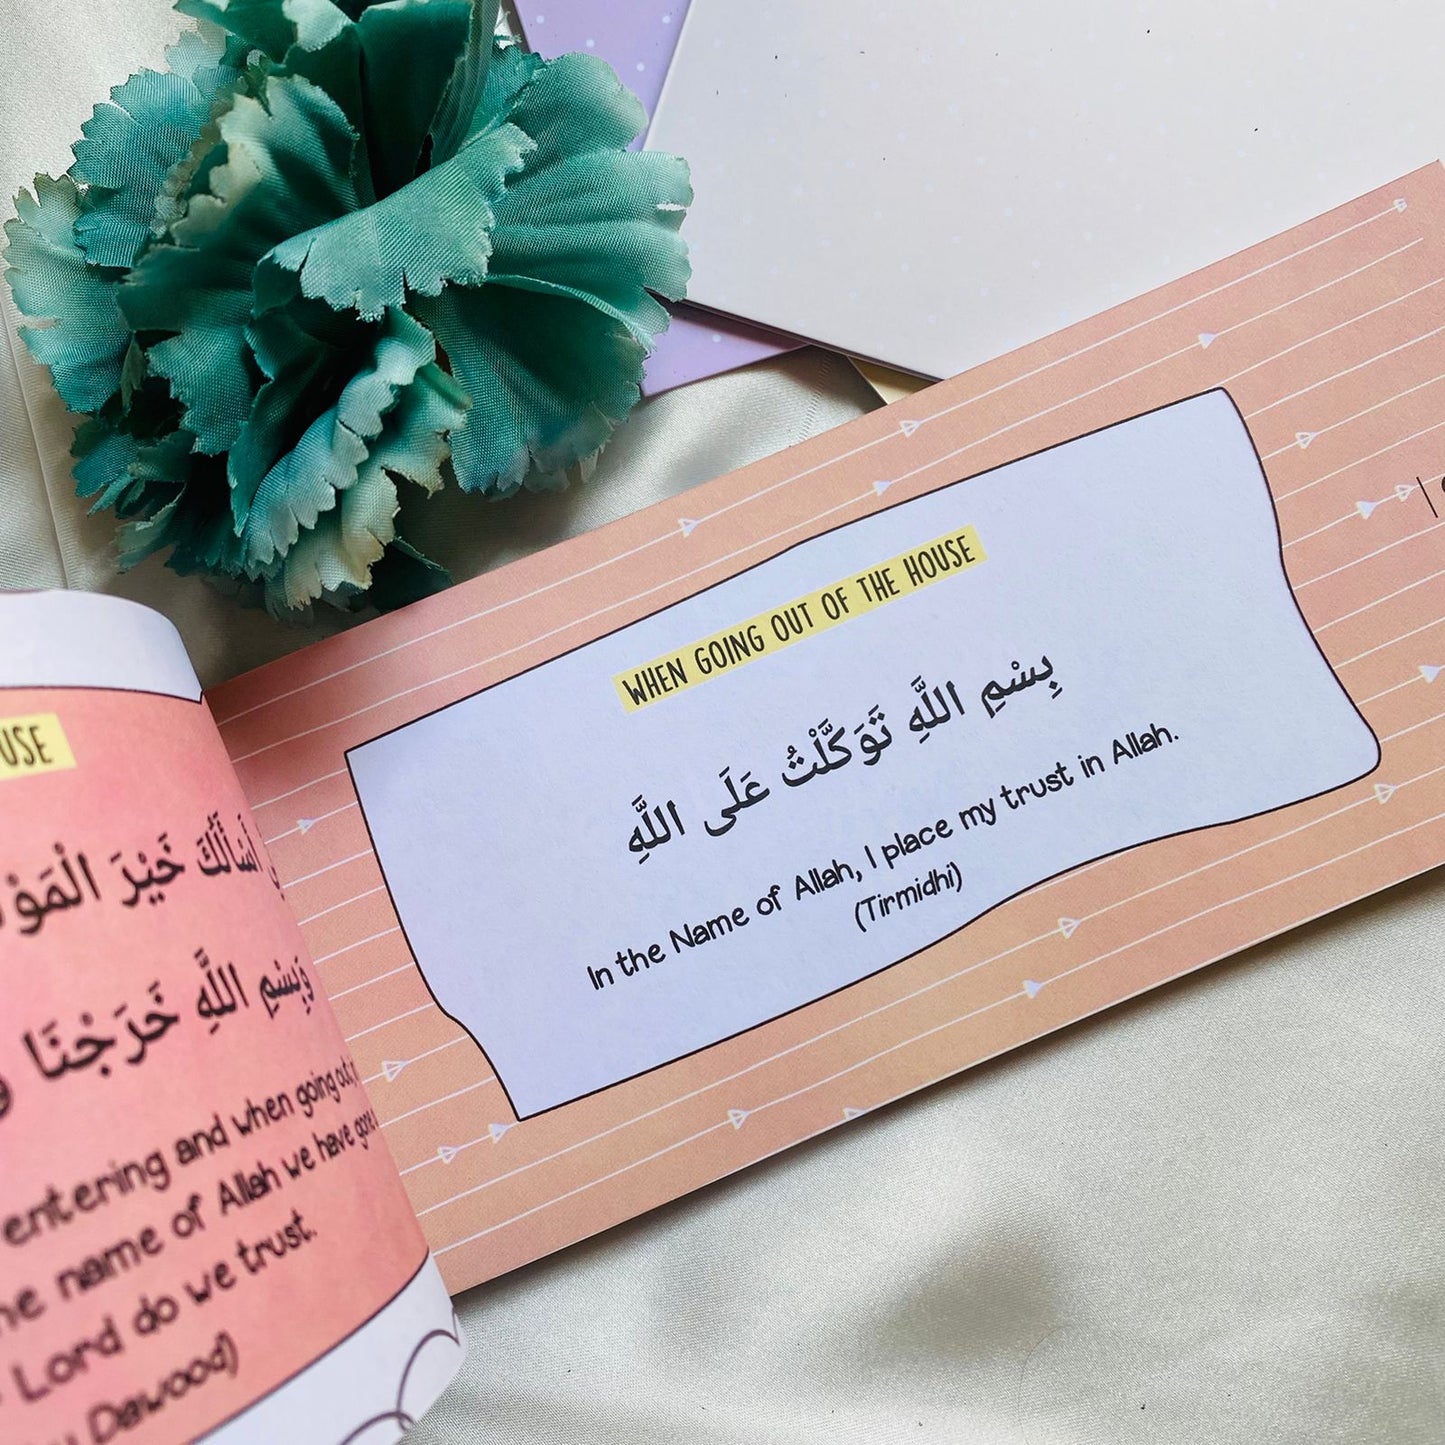 WHEN GOING OUT OF THE HOUSE
بِسْمِ اللَّهِ تَوَكَّلْتُ عَلَى اللَّهِ
In the Name of Allah, I place my trust in Allah.
(Tirmidhi)
أَسْأَلُكَ خَيْرَ
وَبِسْمِ اللَّهِ خَرَجْنَا
entering and when going out,
name of Allah we have gone
Lord do we trust.
Dawood)